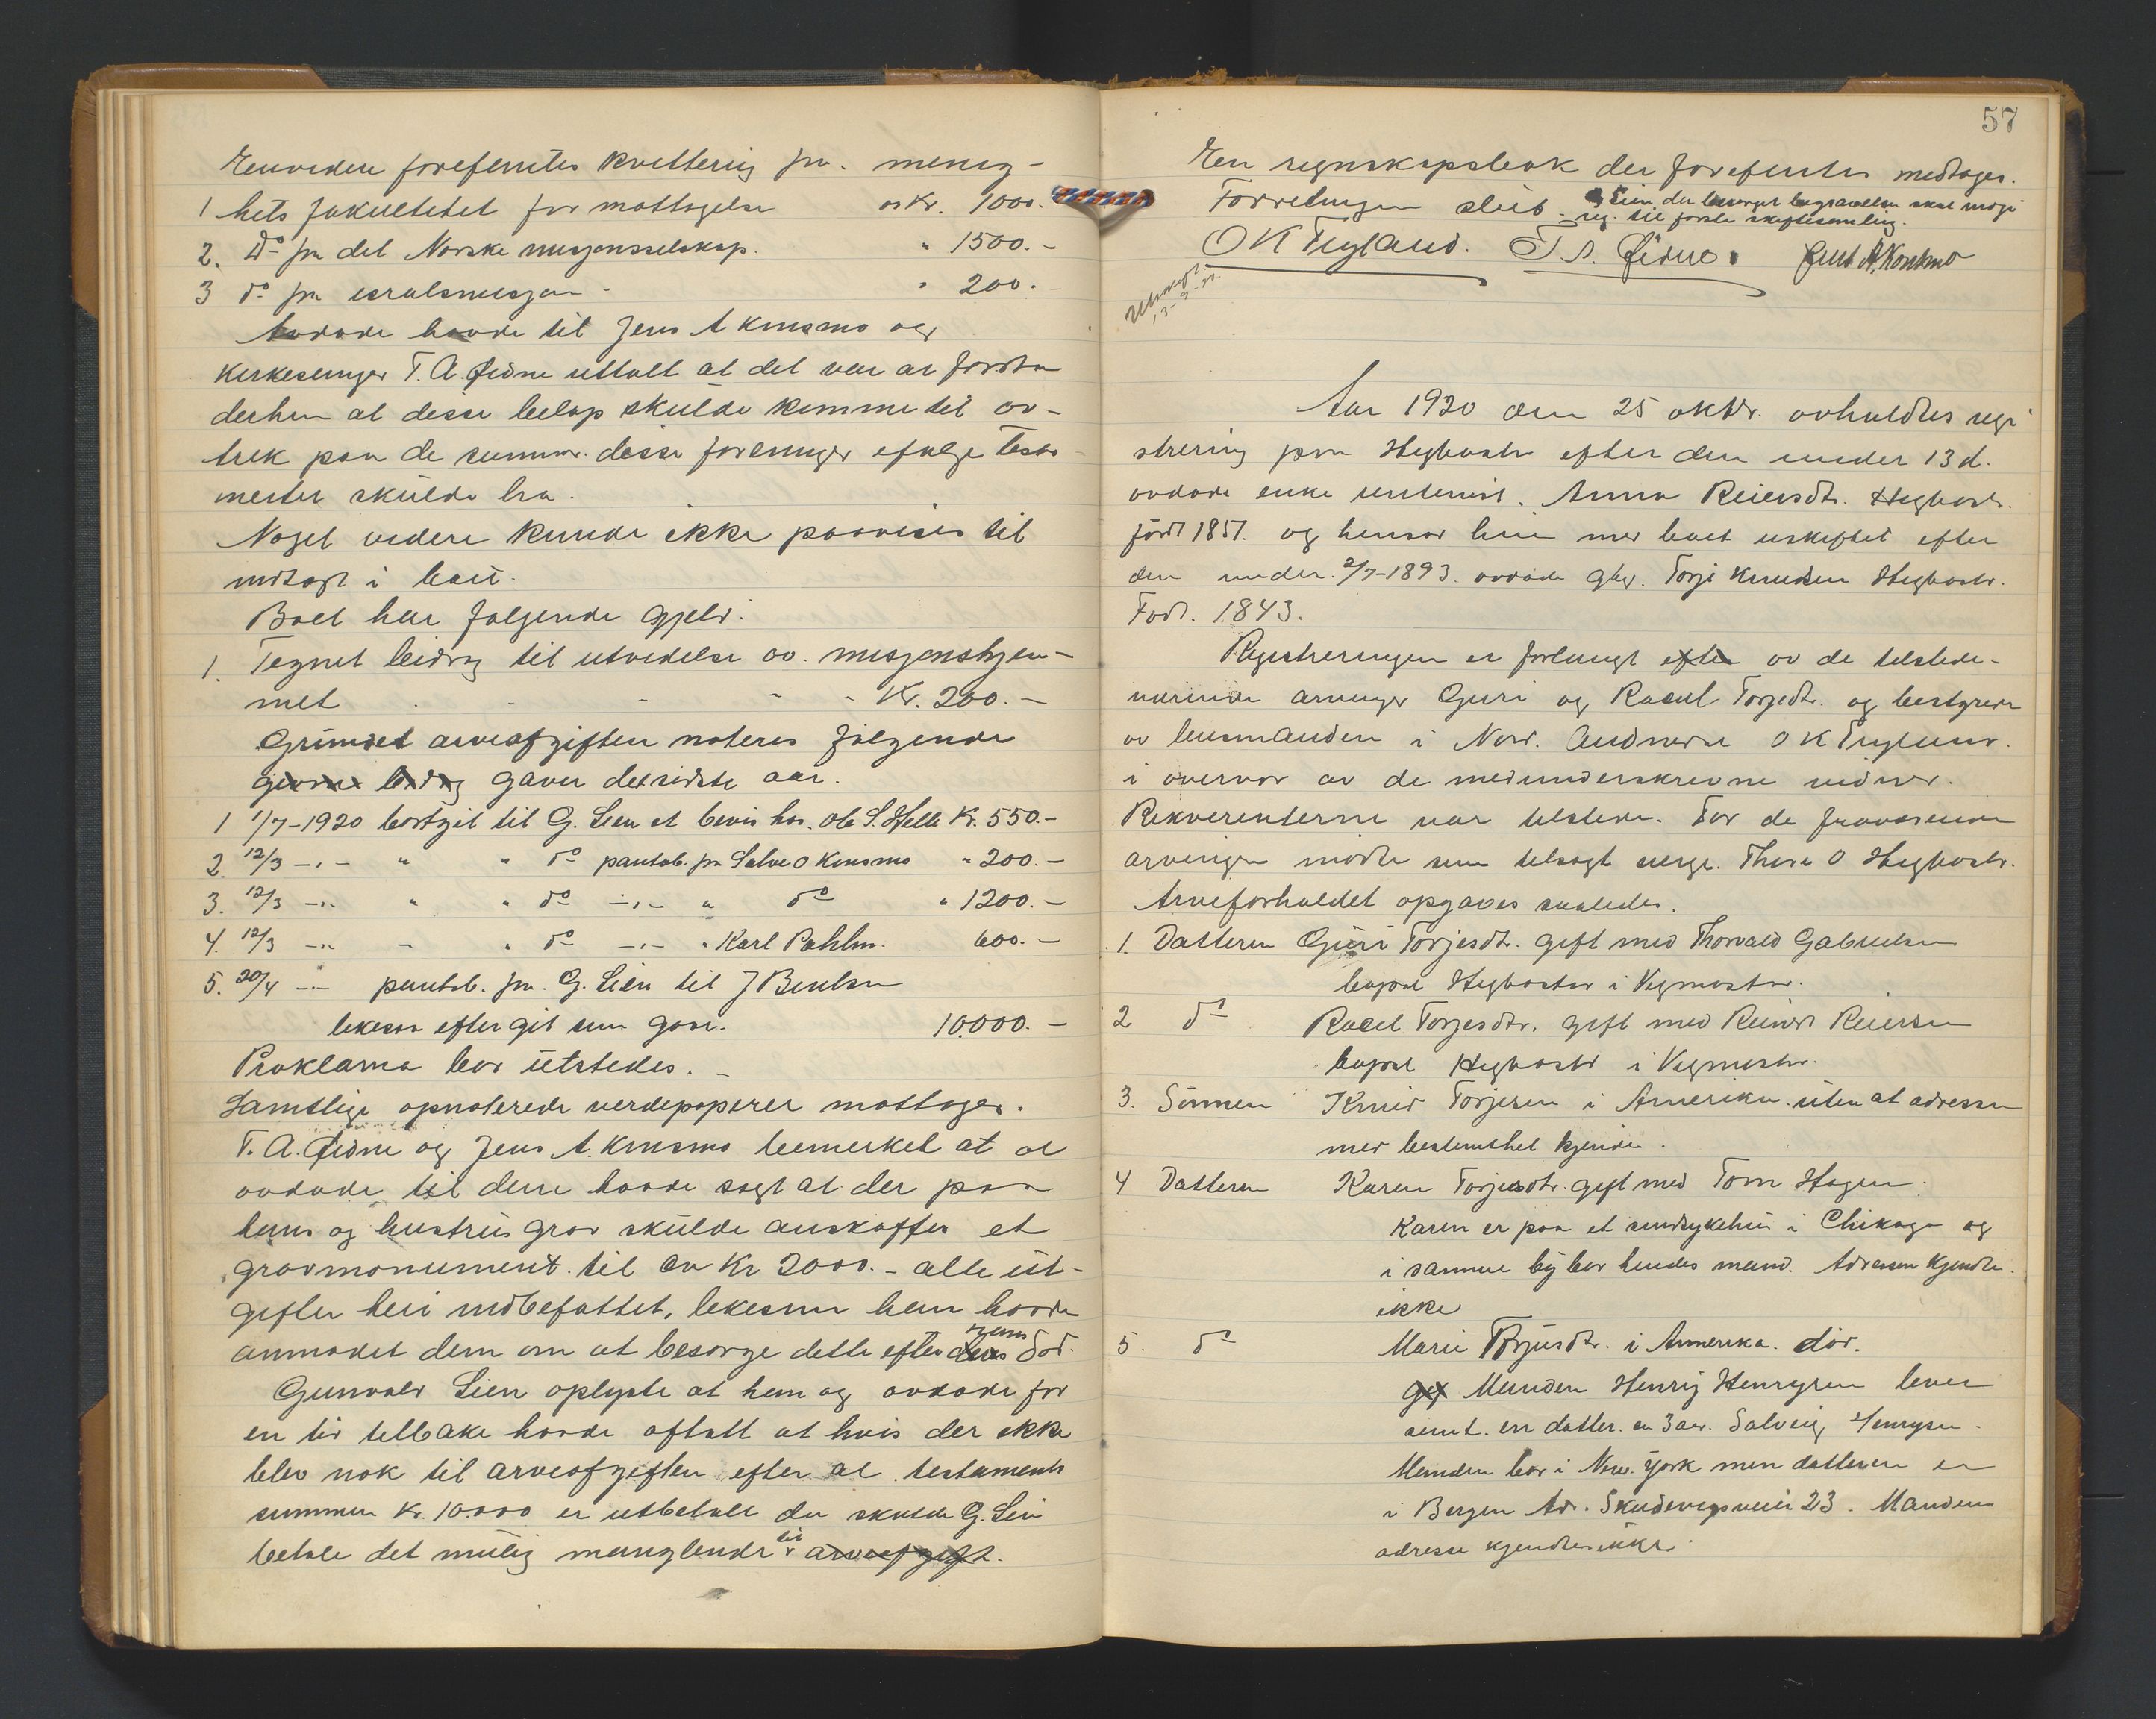 Enuvidere forefentes kvittering fra menig-
1 hets fakultetet for mottagelse av Kr. 1000.-
2. Do fra det Norske misjonsselskap. " 1500.-
3 do fra israelsmisjon - " 200.-
Avdøde havde til Jens A Konsmo og
Kirkesanger T. A. Fidne uttalt at det var at forstaa
derhen at disse beløp skulde komme til av-
trek paa de summer disse foreninger ifølge Testa
mentet skulde ha.
Noget videre kunde ikke paavises til
indtægt i boet.
Boet har følgende gjeld:
1. Tegnet bidrag til utvidelse av misjonshjem-
met - - - Kr. 200.-
Grundet arveafgiften noteres følgende
givne bidrag gaver det sidste aar.
1 1/7-1920 bortgit til G. Lien et bevis hos Ole S. Helle Kr. 550.-
2. 12/3 -"- " " do pantob. fra Salve O Konsmo " 200.-
3. 12/3 -"- " " do -"- " do " 1200.-
4. 12/3 -"- - " do -"- " Karl Pahlm. 600.-
5. 20/4 -"- pantob. fra G. Lien til J Bentsen
likesaa eftergit som gave. 10.000.-
Proklama bør utstedes. -
Samtlige opnoterede verdepapirer mottages.
T. A. Fidne og Jens A. Konsmo bemerket at at
avdøde til dem havde sagt at der paa
hans og hustrus grav skulde anskaffes et
gravmonument til ca Kr 2000.- alle ut-
gifter heri indbefattet, likesom han havde
anmodet dem om at besørge dette efter deres hans død.
Gunvald Lien oplyste at ham og avdøde for
en tid tilbake havde aftalt at hvis der ikke
blev nok til arveafgiften efter at testaments
summen Kr. 10.000 er utbetalt da skulde G. Lien
betale det mulig manglende til arveafgift.
57
En regnskapsbok der forefentes medtages.
Forretningen sluts. G Lien der besørget begravelsen skal indgi
reg. til første skiftesamling.
OK Tryland. T. A. Fidne. Jens A. Konsmo
Utskrift
13-9-21
Aar 1920 den 25 oktbr. avholdtes regi
strering paa Hegbostad efter den under 13 d.
avdøde enke Anna Reiersdtr. Hegbost.
født 1851. og hensad hun med boet uskiftet efter
den under 2/7-1893 avdøde gbr. Torje Knudsen Hegbostad.
Født. 1843.
Registreringen er forlangt efter av de tilstede-
værende arvinger Guri og Rakel Torjedtr. og bestyres
av lensmanden i Nord. Audnedal O K Tryland.
i overvær av de medunderskrevne vidner.
Rekvirenterne var tilstede. For de fraværende
arvinger møtte som tilsagt verge. Thore O Hegbostad.
Arveforholdet opgaves saaledes.
1. Datteren Guri Torjesdtr. gift med Thorvald Gabrielsen
bopæl Hegbostad i Vigmostad.
2 do Rakel Torjesdtr. gift med Reinert Reiersen
bopæl Hegbostad i Vigmostad.
3. Sønnen Knud Torjesen i Amerika uten at adressen
med bestemthet kjendes.
4 Datteren Karen Torjesdtr. gift med Tom Hagen.
Karen er paa et sindsykehus i Chikago og
i samme by bor hendes mand. Adressen kjendes
ikke
5. do Marie Torjusdtr. i Amerika. død.
gif Manden Henrig Henrysen lever
samt en datter ca 3 aar. Solveig Henrysen.
Manden bor i New. York men datteren er
i Bergen Adr. Skudevigsveien 23. Mandens
adresse kjendes ikke.